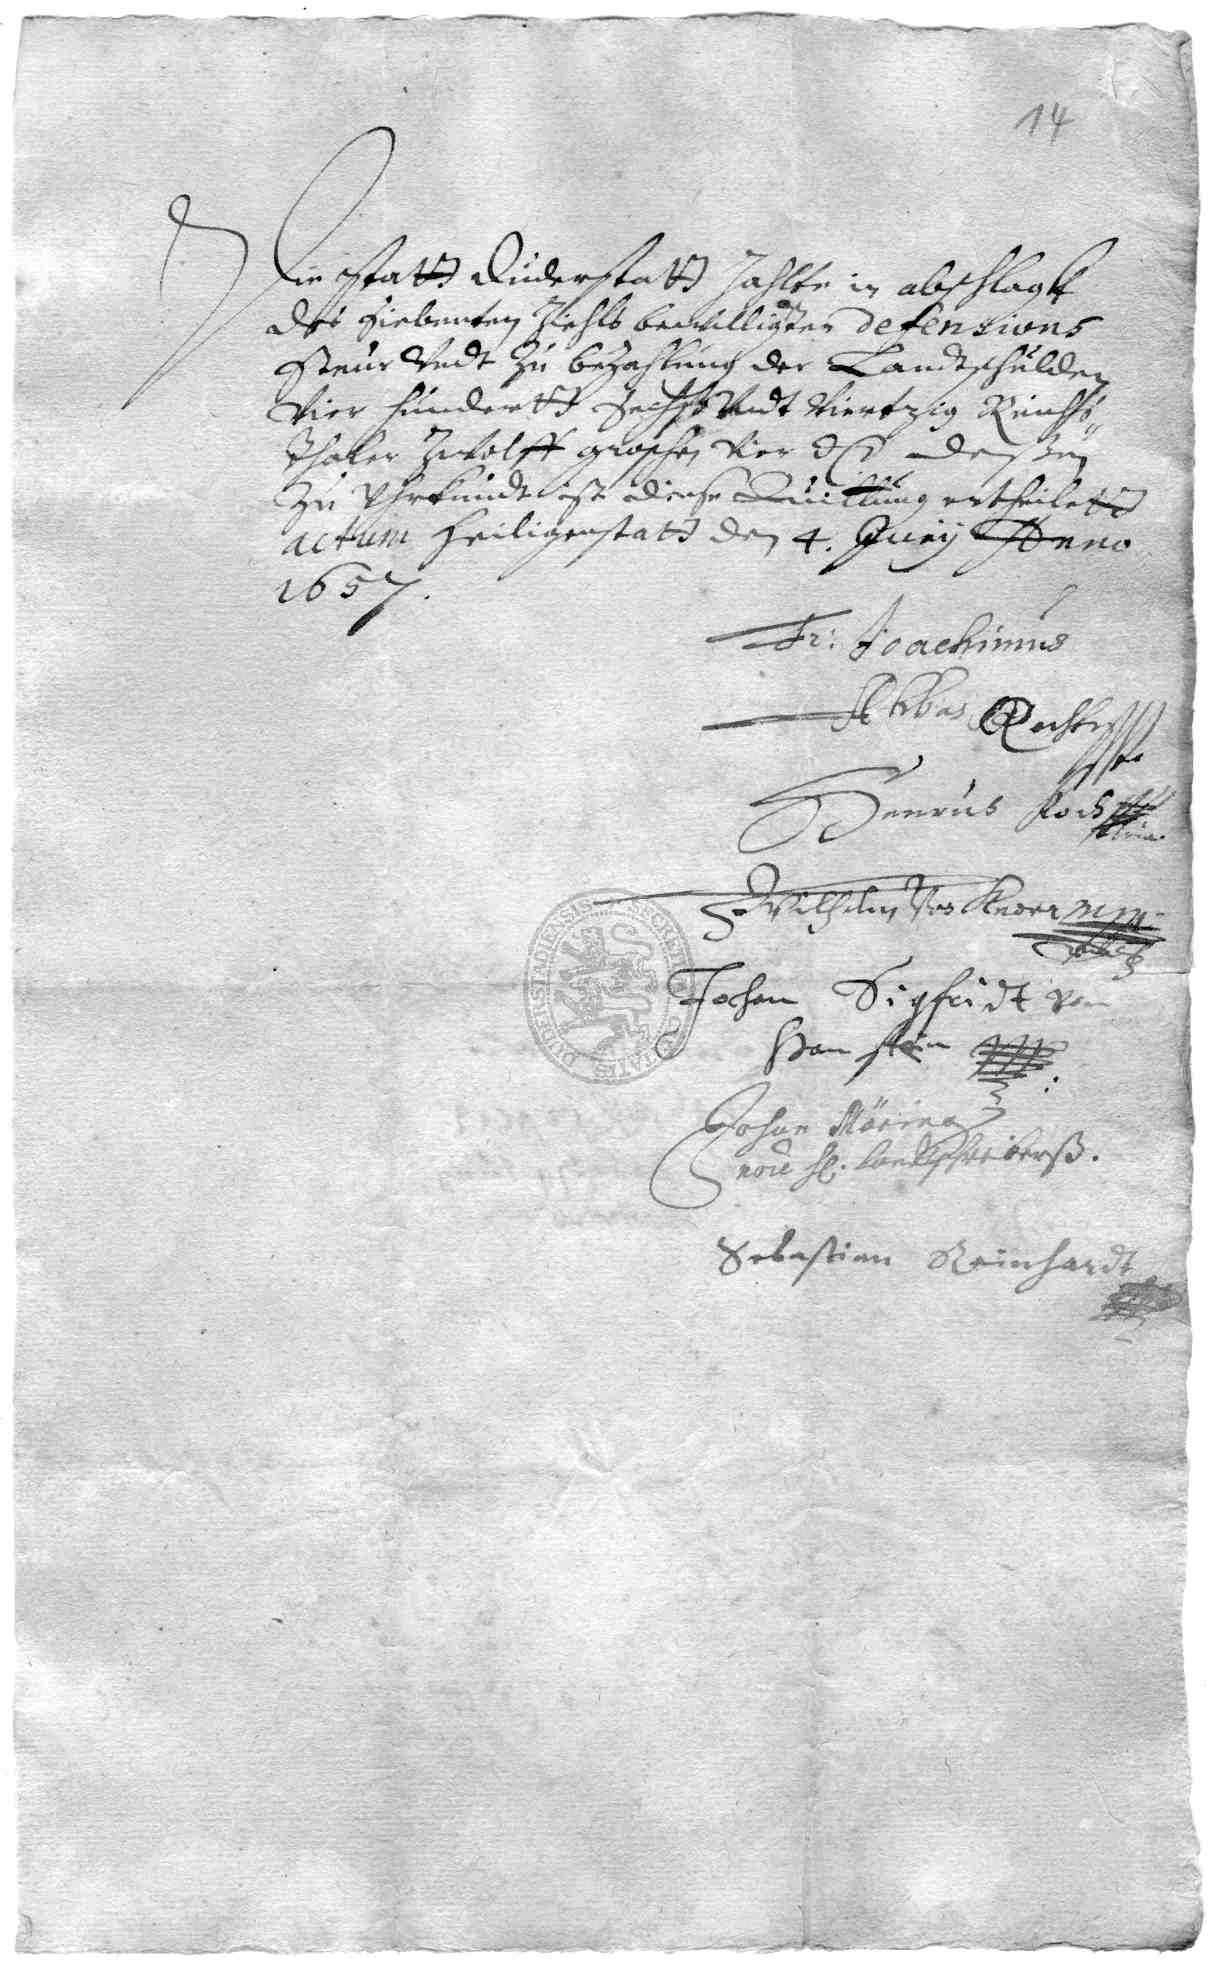 14
Die Statt Duderstatt Zahlte in abschlagk
des Siebenten Ziehls bewilligter defensions
Steur Undt Zu bezahlung der Landtschulden
Vier hundertt Sechs Undt Viertzig Reichs„
thaler Zwolff groschen Vier deßen
Zu Uhrkundt ist diese Quittung ertheilett
actum Heiligenstatt den 4. Juny Anno
1657.
Fr: Joachimus
Abbas
Henrius Koch
Wilhelm Von Knorr mp
Johan Sigfridt von
Hanstein
Johan Möring
noie H. Landtschreiberß.
Sebastian Reinhardt
SECRETUM CIVITATIS DUDERSTADIENSIS